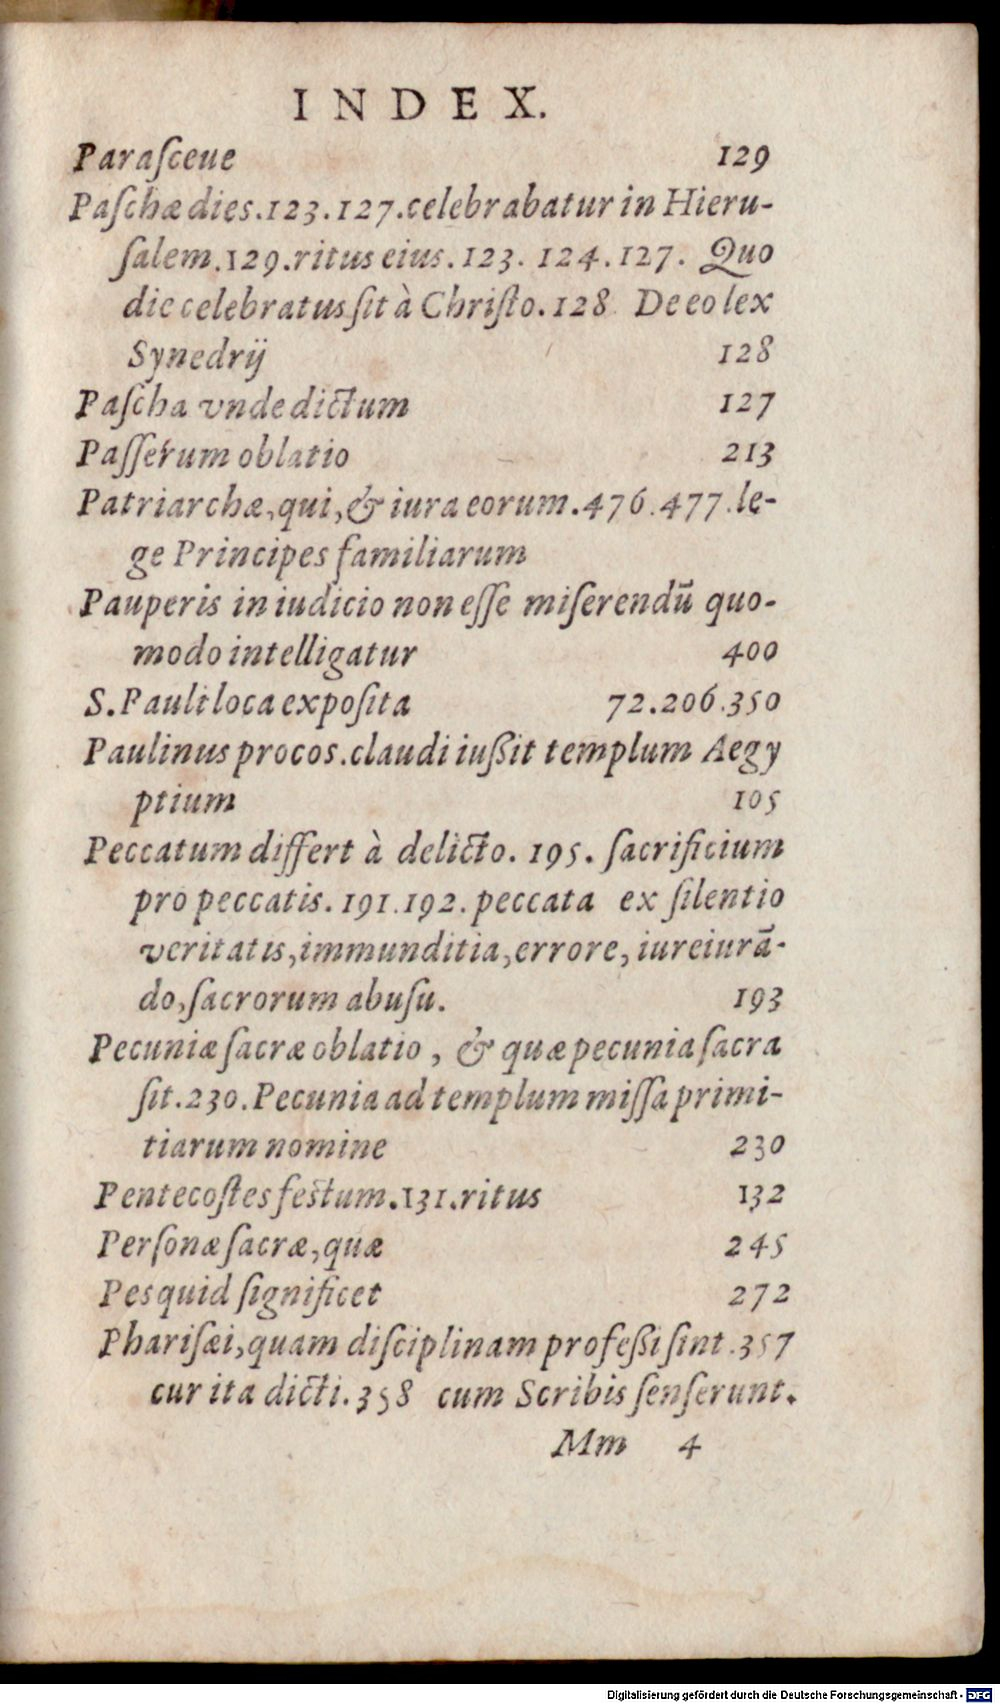 INDEX.
Paraſceue 129
Paſchæ dies.123.127.celebrabatur in Hieru-
ſalem.129.ritus eius.123. 124.127. Quo
die celebratus ſit à Chriſto.128 De eo lex
Synedrij 128
Paſcha vnde dictum 127
Paſſerum oblatio 213
Patriarchæ,qui,& iura eorum.476.477.le-
ge Principes familiarum
Pauperis in iudicio non eſſe miſerendū quo-
modo intelligatur 400
S.Pauli loca expoſita 72.206.350
Paulinus procos.claudi iußit templum Aegy
ptium 105
Peccatum differt à delicto. 195. ſacrificium
pro peccatis.191.192.peccata ex ſilentio
veritatis,immunditia,errore,iureiurā-
do,ſacrorum abuſu. 193
Pecuniæ ſacræ oblatio, & quæ pecunia ſacra
ſit.230.Pecunia ad templum miſſa primi-
tiarum nomine 230
Pentecoſtes feſtum.131.ritus 132
Perſonæ ſacræ,quæ 245
Pes quid ſignificet 272
Phariſæi,quam diſciplinam profeßi ſint.357
cur ita dicti.358 cum Scribis ſenſerunt.
Mm 4
Digitalisierung gefördert durch die Deutsche Forschungsgemeinschaft - DFG